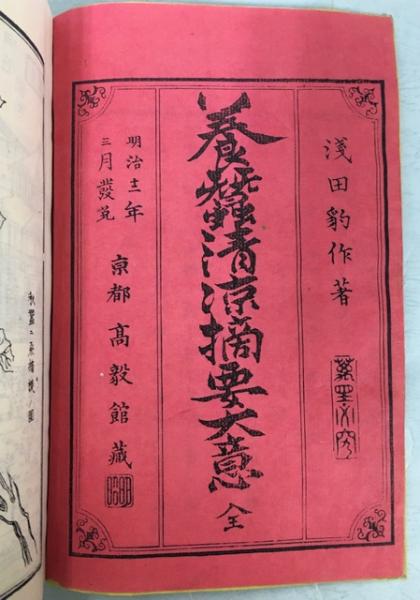 淺田豹作著
養蠶清凉摘要大意 全
明治十二年
三月發兌
亰都 高毅館藏